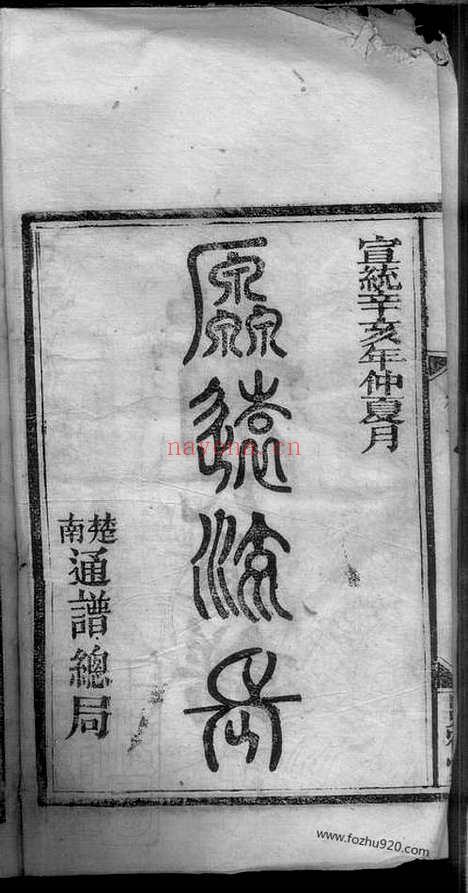 宣統辛亥年仲夏月
厵遠流長
楚南通譜總局
nayona.cn
www.fozhu920.com